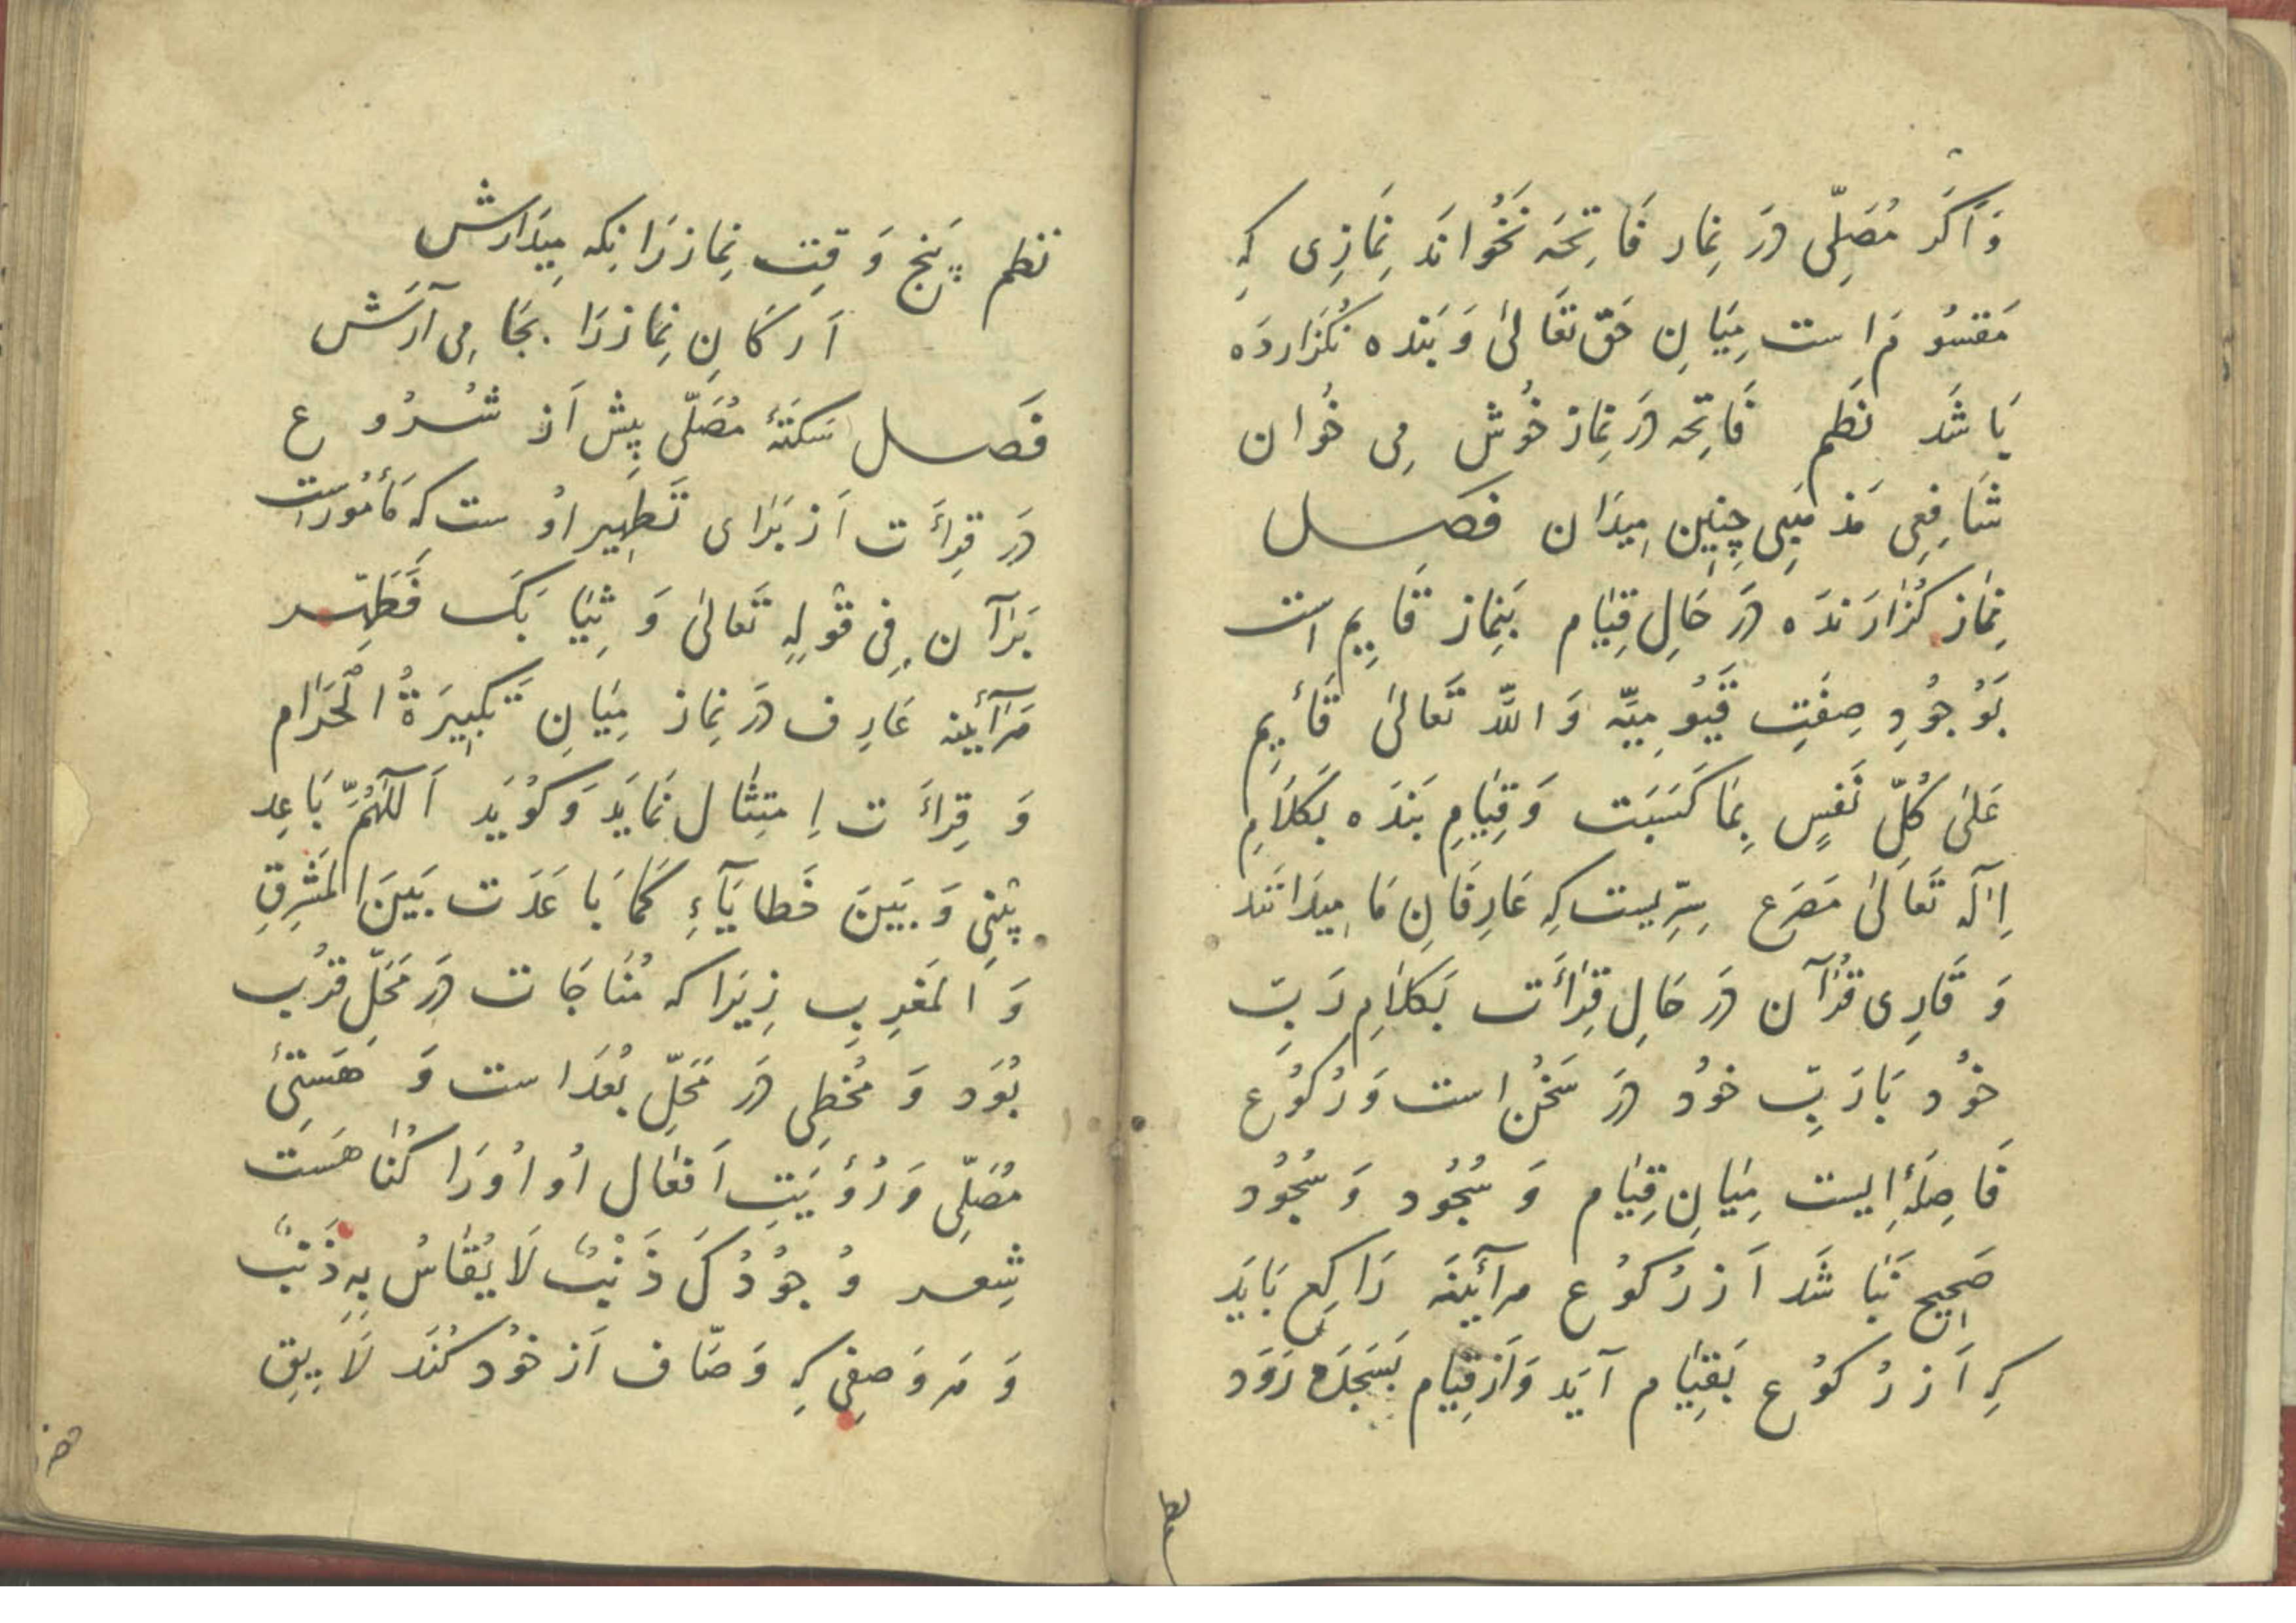 وَاَگَر مُصَلِّی دَر نِمار فَاتِحَه نَخُوانَد نَمازِی کِه
مَقسُوم است مِیَانِ حَق تَعَالیٰ وَ بَنده نگُزاردَه
بَاشَد نَظم فَاتِحَه دَر نِماز خُوش مِی خُوان
شَافِعِی مَذهَبِی چِنِین مِیدَان فَصل
نِماز گُزارَندَه دَر حَالِ قِیَام بَنِماز قَایِم است
بَوُجُودِ صِفَتِ قَیُّومِیَّه وَ اللّٰه تَعَالیٰ قَأیِم
عَلیٰ کُلِّ نَفسٍ بِمَا کَسَبَت وَ قِیَامِ بَندَه بَکَلَامِ
اِلٓه تَعَالیٰ مَصرَع سِرِّیست کِه عَارِفَانِ مَا مِیدَانَند
وَ قَارِی قُرآن دَر حَالِ قِرَأَت بَکَلَامِ رَبِّ
خوُد بَا رَبِّ خوُد دَر سَخُن است وَ رُکُوع
فَاصِلَۀِٔ ایست مِیَانِ قِیَام وَ سُجُود وَ سُجُود
صَحِیح نَبَاشَد اَز رُکوُع هرآئینَه رَاکِع بَایَد
کِه اَز رُکوُع بَقِیَام آیَد وَ اَز قِیَام بَسَجدَه رَوَد
نظم پَنج وَقتِ نِماز رَا نِکه مِیدَارش
اَرکَانِ نِماز رَا بَجَا مِی آرَش
فَصل سَکتَۀٔ مُصَلّی پِیش اَز شُرُوع
دَر قِرأَت اَز بَرَای تَطهِیر اوُست که مَأمُور است
بَرآن فِی قَولِهِ تَعَالیٰ وَ ثِیَابَکَ فَطَهِّر
هَرآئینه عَارِف دَر نِماز مِیَانِ تَکبِیرَةُ الحَرَام
وَ قِرأَت اِمتِثَال نَمَایَد وَ گوُیَد اَللّٰهُمَّ بَاعِد
بَینِی وَ بَینَ خَطَایَآءِ کَمَا بَاعَدَت بَینَ المَشرِقِ
وَ المَغرِبِ زِیرَا که مُنَاجَات دَر مَحَلِّ قُرب
بُوَد وَ مُخطِی دَر مَحَلِّ بُعد است وَ هَستِیٔ
مُصَلِّی وَ رُؤیَتِ اَفعَال اُو اُورَا گُنَاهَست
شِعر وُجوُدُکَ ذَنبٌ لَا یُقَاسُ بِهِ ذَنبٌ
وَ هر وَصفِی کِه وَصَّاف اَز خوُد کُنَد لَایِقِ